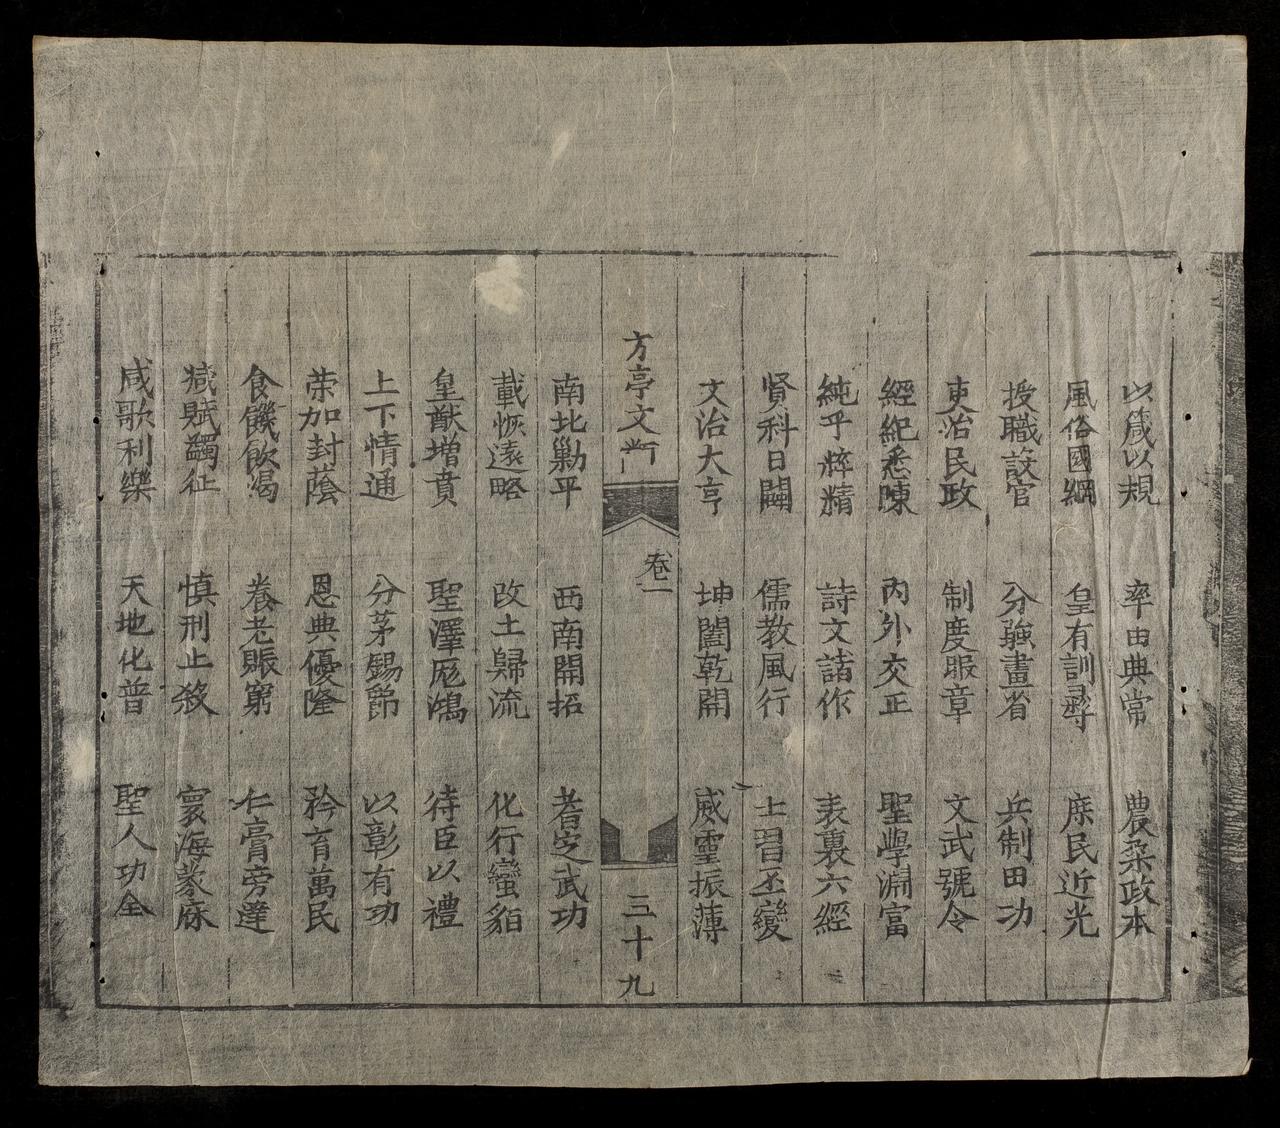 以箴以規 率由典常 農桑政本
風俗國綱 皇有訓尋 庶民近光
授職設官 分強畫省 兵制田功
吏治民政 制度服章 文武號令
經紀悉陳 內外交正 聖學淵富
純乎粹精 詩文諸作 表裏六經
賢科日闢 儒教風行 士習丕變
文治大亨 坤闔乾開 威靈振薄
方亭文 卷一 三十九
南北勦平 西南開拓 耆定武功
載恢遠略 改土歸流 化行蠻貊
皇猷增賁 聖澤厖鴻 待臣以禮
上下情通 分茅錫節 以彰有功
荣加封蔭 恩典優隆 矜育萬民
食饑飲渴 養老賑窮 仁膏旁達
減賦蠲征 慎刑止殺 寰海蒙庥
咸歌利樂 天地化普 聖人功全